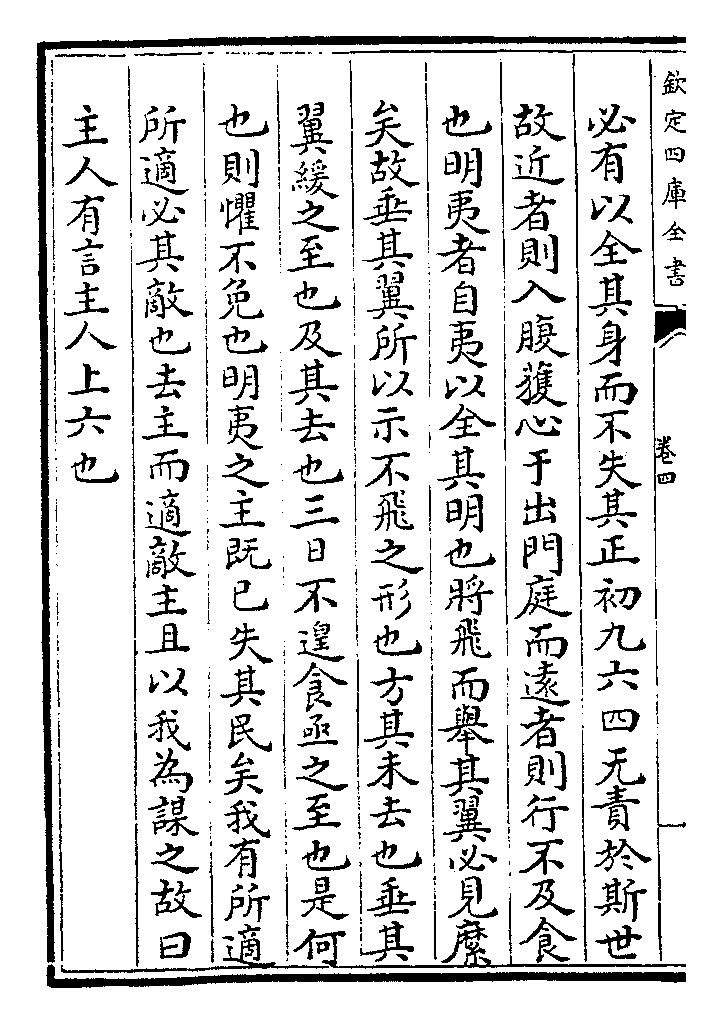 欽定四庫全書
卷四
必有以全其身而不失其正初九六四无責於斯世
故近者則入腹獲心于出門庭而遠者則行不及食
也明夷者自夷以全其明也將飛而舉其翼必見縻
矣故垂其翼所以示不飛之形也方其未去也垂其
翼緩之至也及其去也三日不遑食亟之至也是何
也則懼不免也明夷之主既已失其民矣我有所適
所適必其敵也去主而適敵主且以我為謀之故曰
主人有言主人上六也